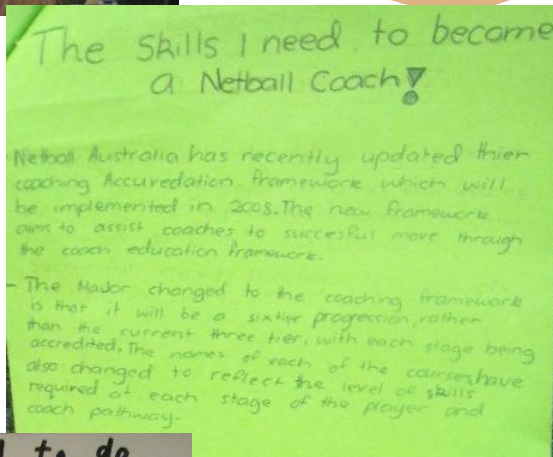 The Skills I need to become
a Netball Coach!
Netball Australia has recently updated thier
coaching Accuredation framework which will
be implemented in 2008. The new framework
aims to assist coaches to succesful move through
the coach education framework.
- The Major changed to the coaching framework
is that it will be a sixtier progression, rather
than the current three tier, with each stage being
accredited. The names of each of the courses have
also changed to reflect the level of skills
required at each stage of the player and
coach pathway.
to do